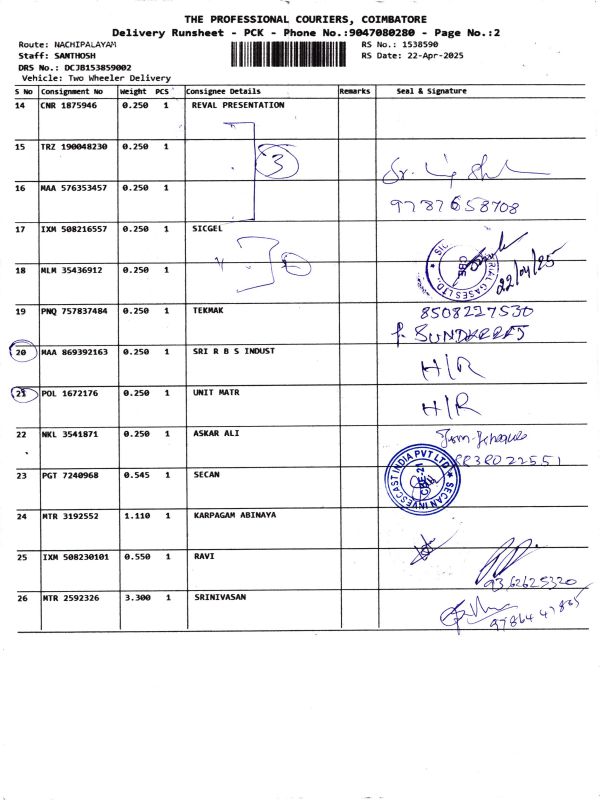 THE PROFESSIONAL COURIERS, COIMBATORE
Delivery Runsheet - PCK - Phone No.:9047080280 - Page No.:2
Route: NACHIPALAYAM RS No.: 1538590
Staff: SANTHOSH RS Date: 22-Apr-2025
DRS No.: DCJB153859002
Vehicle: Two Wheeler Delivery
S No Consignment No Weight PCS Consignee Details Remarks Seal & Signature
14 CNR 1875946 0.250 1 REVAL PRESENTATION
15 TRZ 190048230 0.250 1
3
16 MAA 576353457 0.250 1
9787658708
17 IXM 508216557 0.250 1 SICGEL
18 MLM 35436912 0.250 1
22/04/25
19 PNQ 757837484 0.250 1 TEKMAK 8508227530
20 MAA 869392163 0.250 1 SRI R B S INDUST H/R
21 POL 1672176 0.250 1 UNIT MATR H/R
22 NKL 3541871 0.250 1 ASKAR ALI
23 PGT 7240968 0.545 1 SECAN
SECAN INVESCAST INDIA PVT LTD
CBE-21
24 MTR 3192552 1.110 1 KARPAGAM ABINAYA
25 IXM 508230101 0.550 1 RAVI
9362625320
26 MTR 2592326 3.300 1 SRINIVASAN